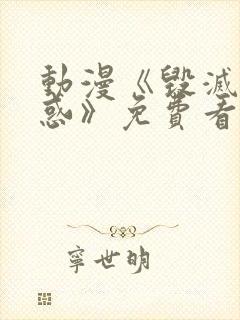 動漫《毀滅
惑》免費看
寧世明